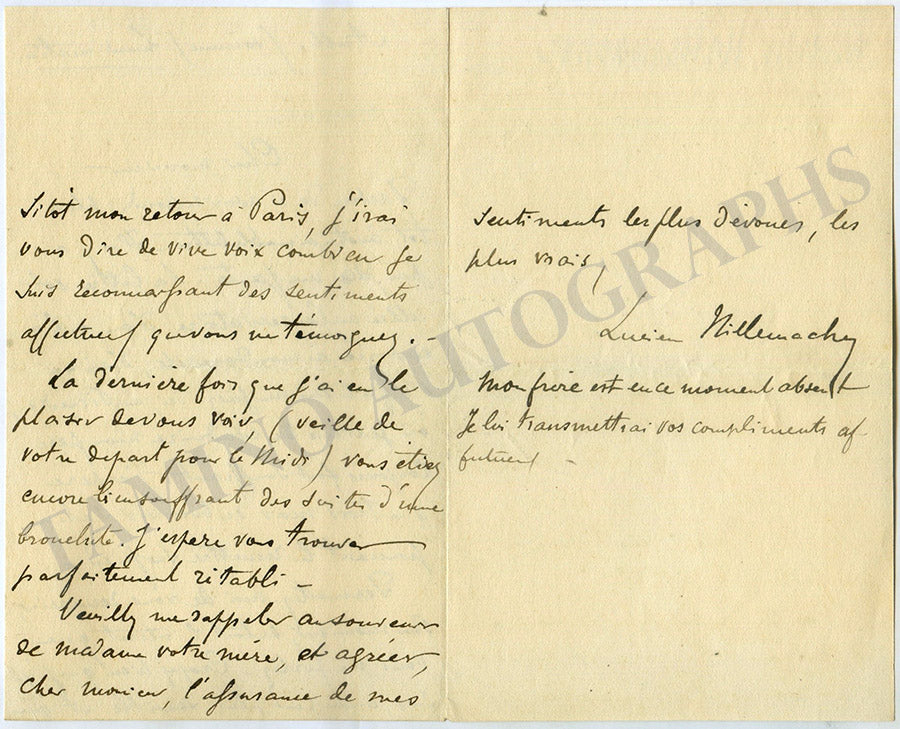 Sitôt mon retour à Paris, j'irai
vous dire de vive voix combien je
suis reconnaissant des sentiments
affectueux que vous me témoignez. –
La dernière fois que j'ai eu le
plaisir de vous voir, (veille de
votre départ pour le Midi) vous étiez
encore bien souffrant des suites d'une
bronchite. J'espère vous trouver
parfaitement rétabli –
Veuillez me rappeler au souvenir
de madame votre mère, et agréer,
cher monsieur, l'assurance de mes
sentiments les plus dévoués, les
plus vrais,
Lucien Hillemacher
Mon frère est en ce moment absent
Je lui transmettrai vos compliments af
fectueux –
TAMINO AUTOGRAPHS